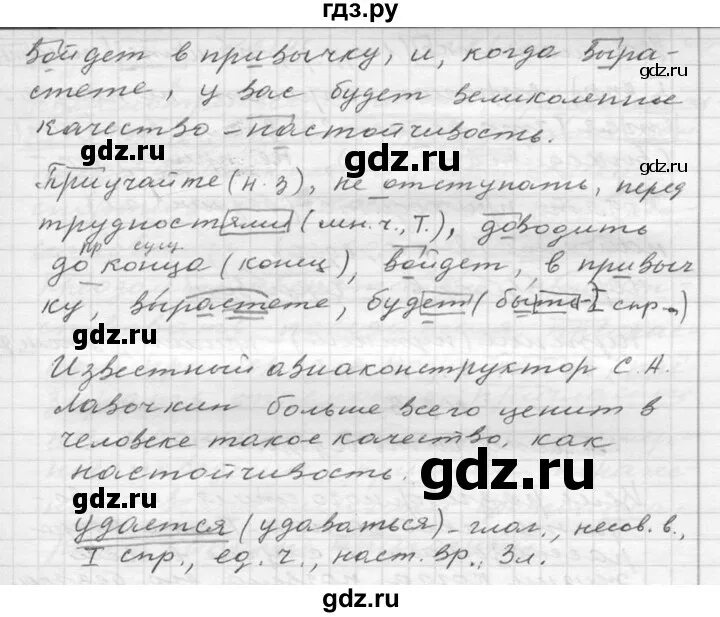 гдз.ру
войдет в привычку, и, когда выра-
стете, у вас будет великолепное
качество – настойчивость.
gdz.ru
gdz.ru
gdz.ru
Приучайте (н.з), не отступать, перед
трудностями (мн.ч., Т.), доводить
пр сущ.
до конца (конец), войдет, в привыч
ку, вырастете, будет (быть – I спр.)
gdz.ru
gdz.ru
Известный авиаконструктор С.А.
Лавочкин больше всего ценит в
человеке такое качество, как
настойчивость.
gdz.ru
gdz.ru
удается (удаваться) – глаг., несов. в.,
I спр., ед. ч., наст. вр., 3 л.
gdz.ru
gdz.ru